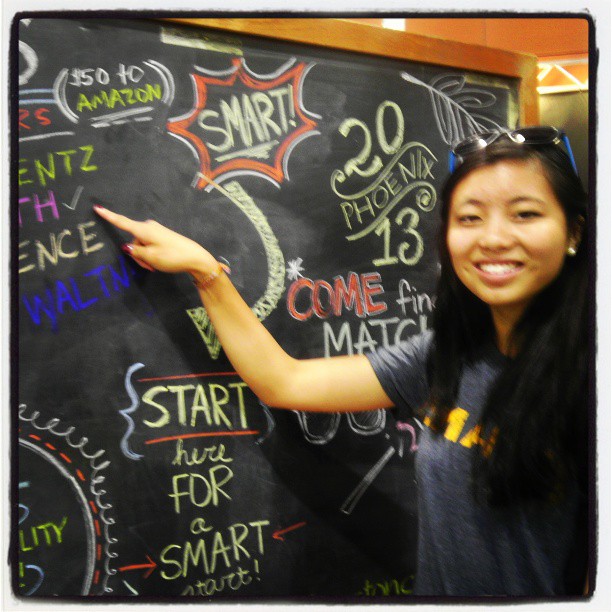 ($50 to
AMAZON)
RS
SMART!
20
PHOENIX
13
ENTZ
TH ✓
ENCE
WALTN
*COME fin
MATCH
{START
here
FOR
a
SMART
start!
LITY
!